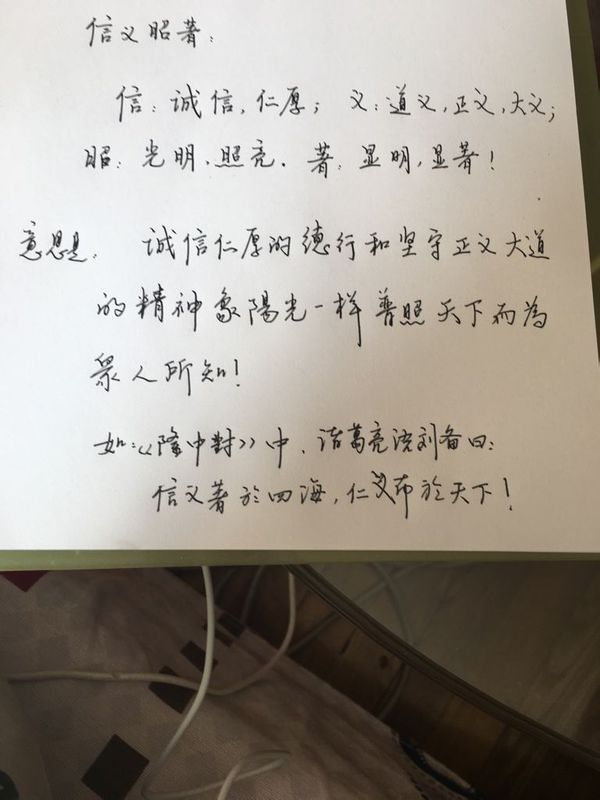 信义昭著：
信：诚信，仁厚；义：道义，正义，大义；
昭：光明，照亮．著：显明，显著！
意思是：诚信仁厚的德行和坚守正义大道
的精神象陽光一样普照天下而為
眾人所知！
如：《隆中對》中，诸葛亮说刘备曰：
信义著於四海，仁义布於天下！